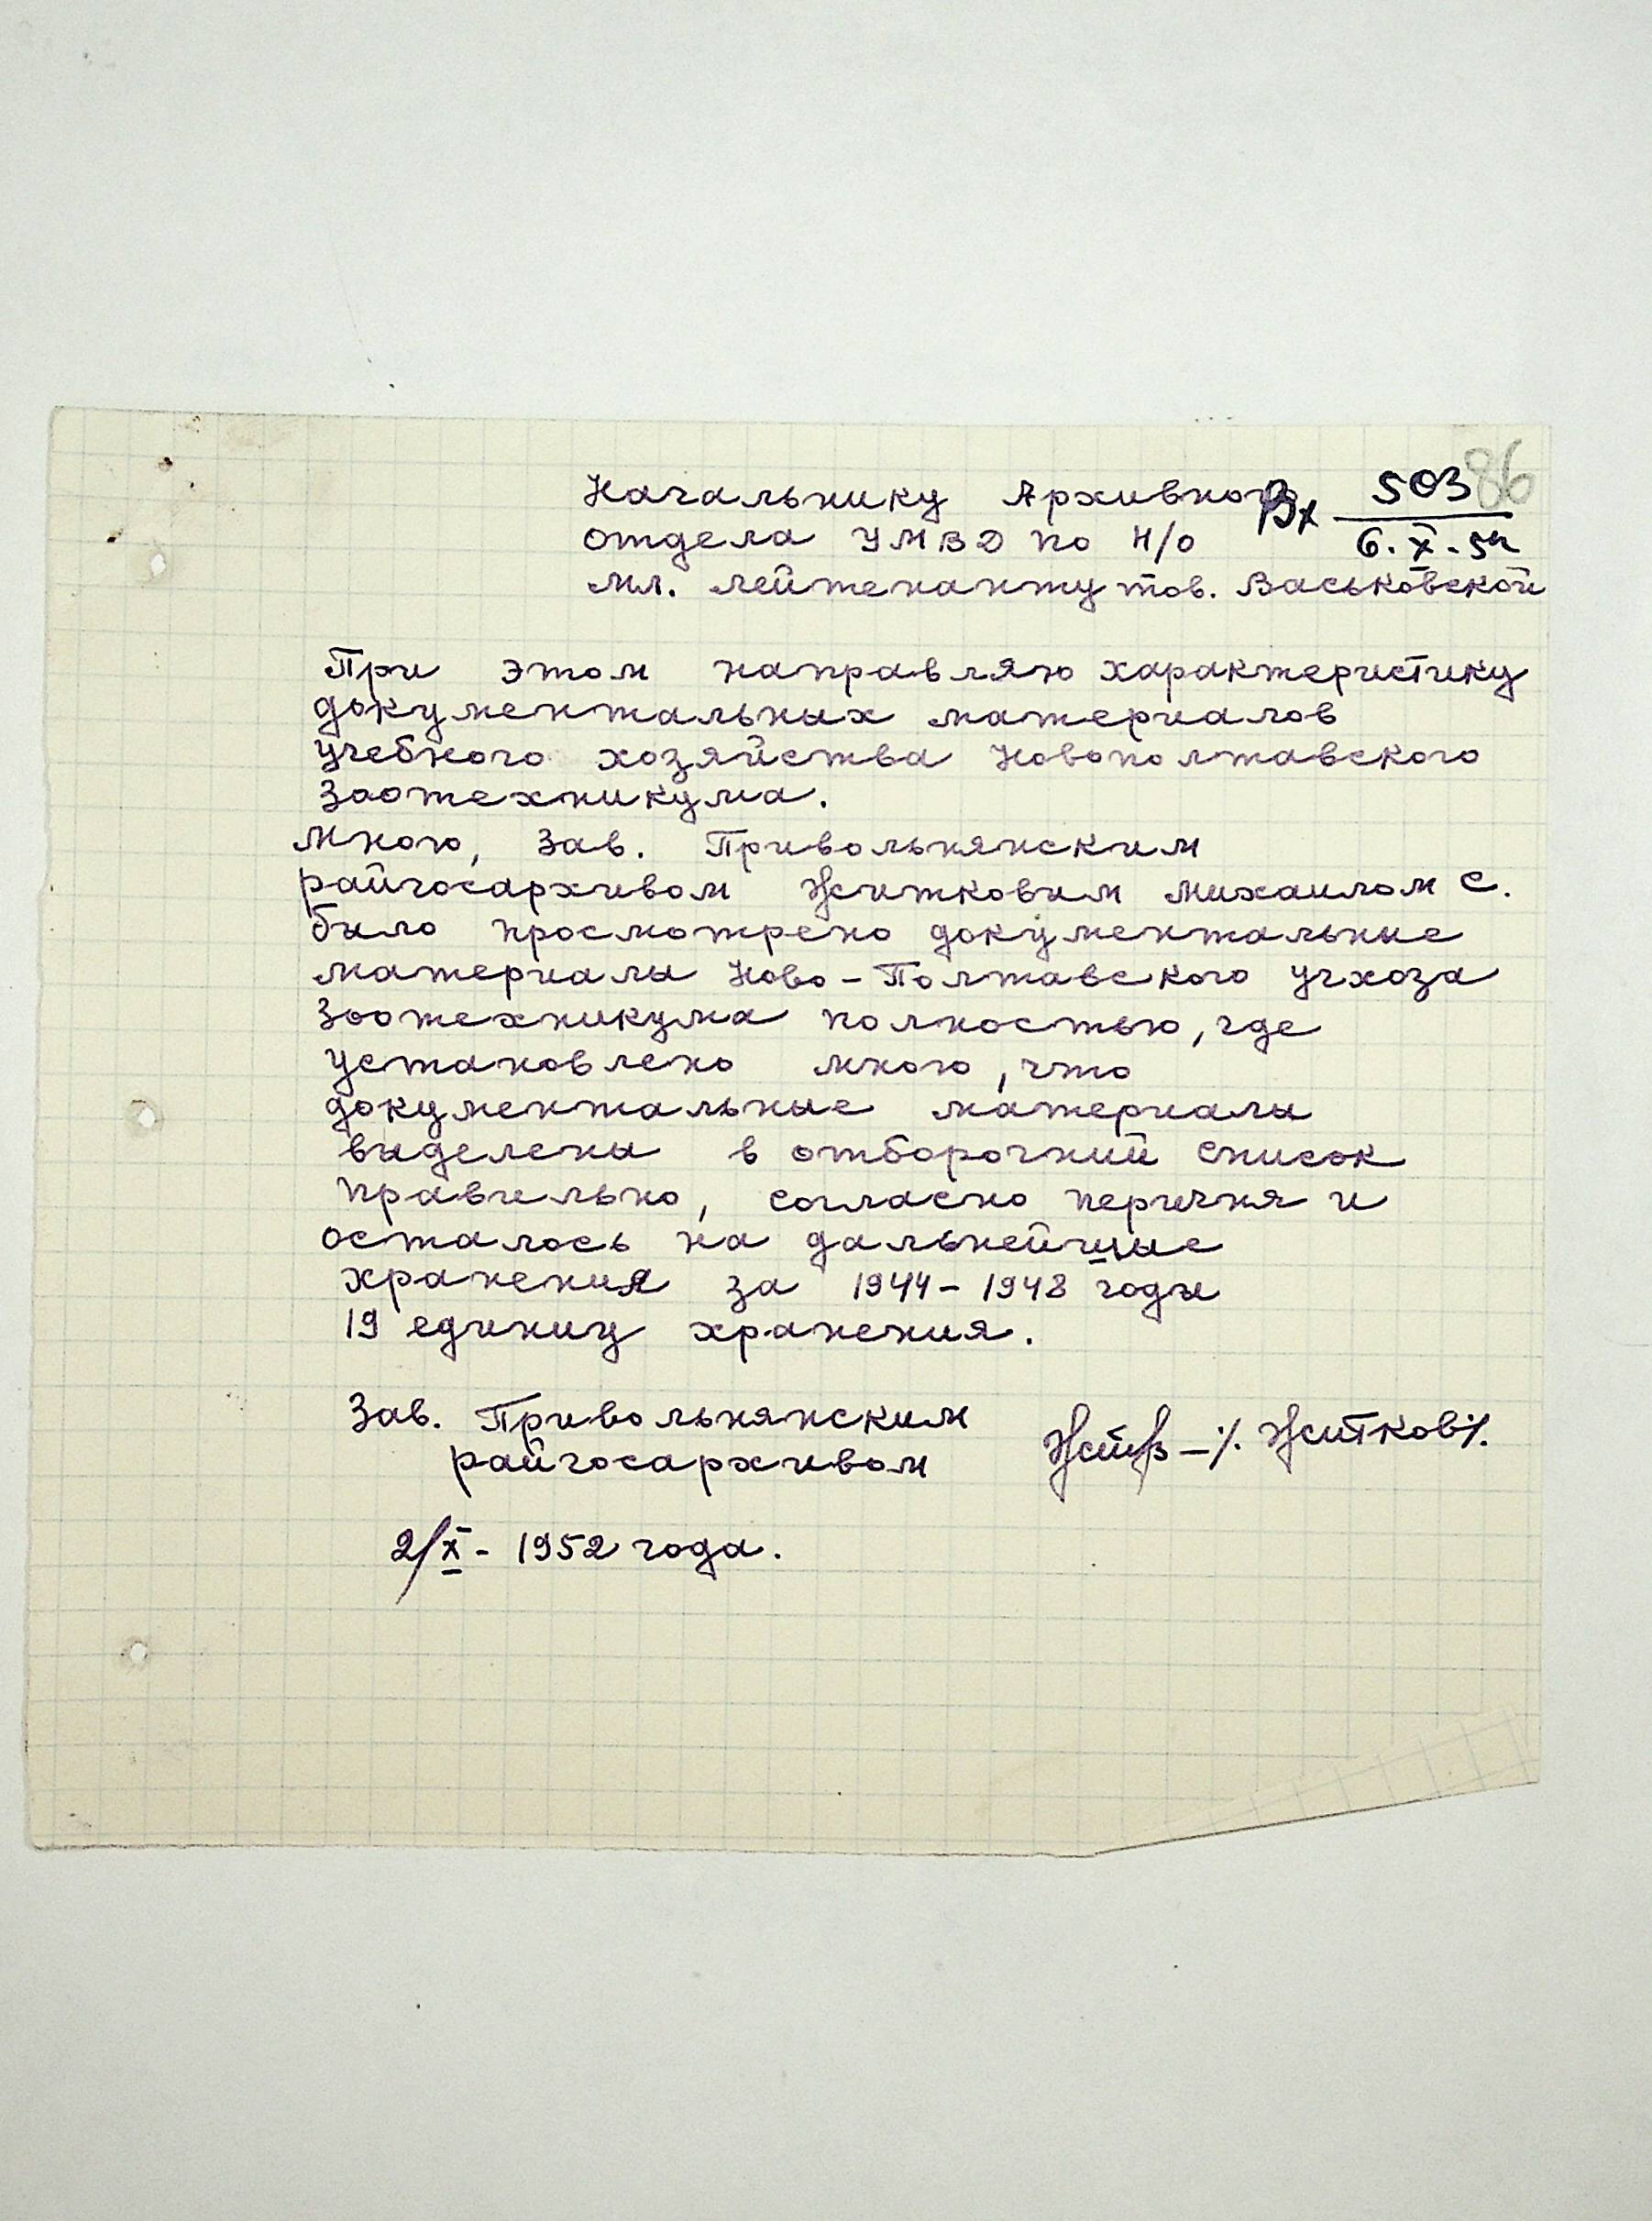 Начальнику Архивного
Вх 503 86
6.X.52
отдела УМВД по Н/О
мл. лейтенанту тов. Васьковской
При этом направляю характеристику
документальных материалов
учебного хозяйства Новополтавского
Зоотехникума.
Мною, Зав. Привольнянским
райгосархивом Житковым Михаилом С.
было просмотрено документальные
материалы Ново-Полтавского учхоза
Зоотехникума полностью, где
установлено мною, что
документальные материалы
выделены в отборочный список
правильно, согласно перичня и
осталось на дальнейшые
хранения за 1944-1948 годы
19 единиц хранения.
Зав. Привольнянским
райгосархивом
-/. Житков/.
2/X - 1952 года.